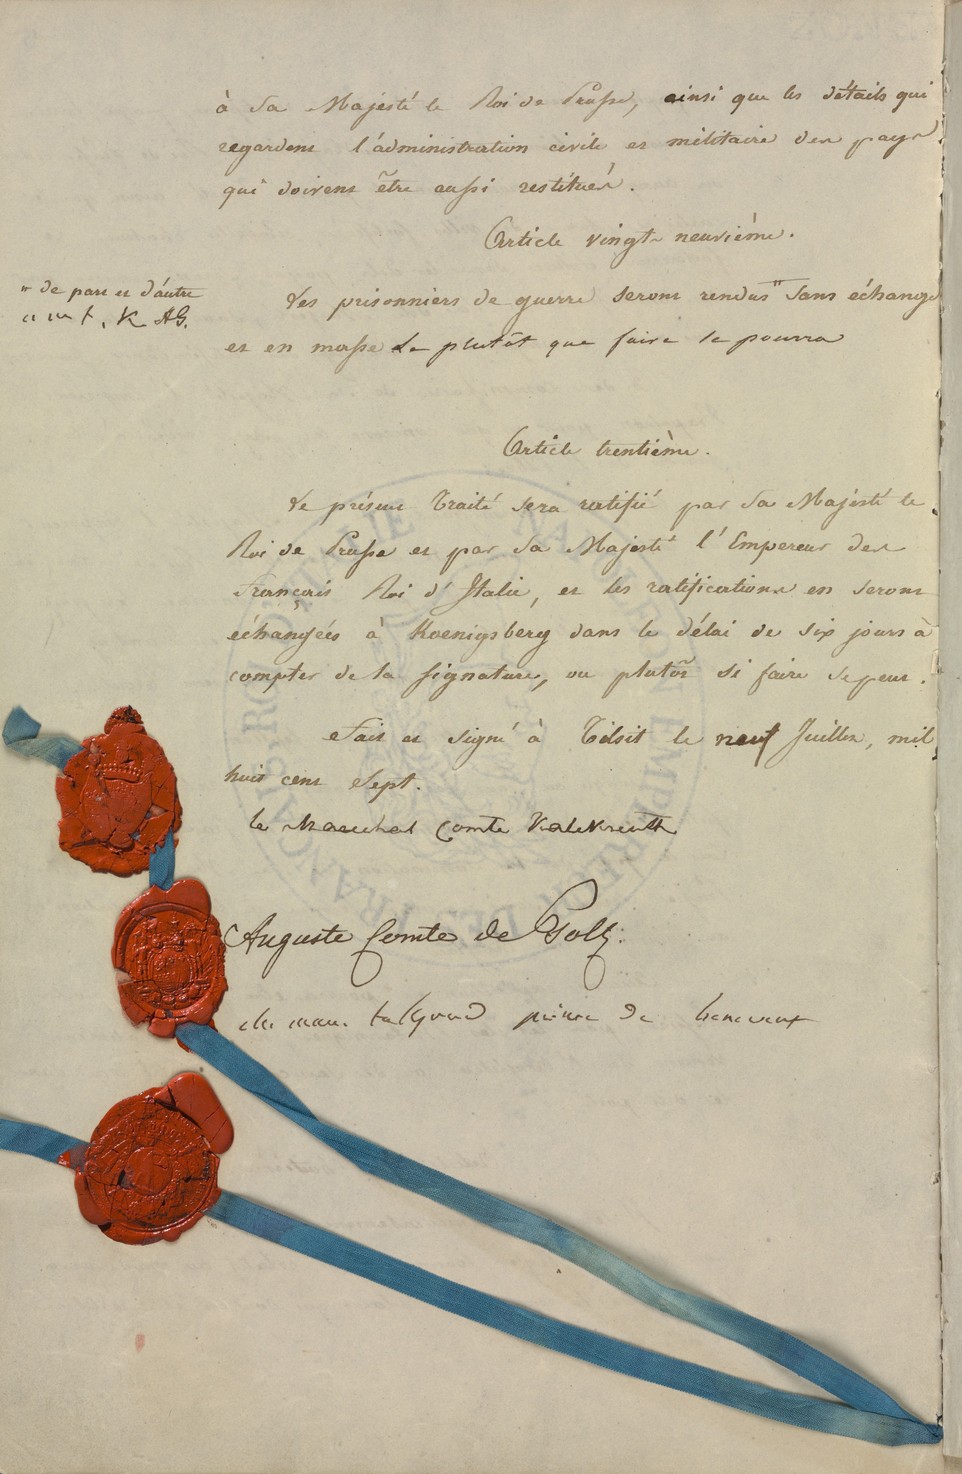 à Sa Majesté le Roi de Prusse, ainsi que les détails qui
regardent l'administration civile et militaire des pays
qui doivent être aussi restitués.
Article vingt neuvième.
" de part et d'autre
Les prisonniers de guerre seront rendus " sans échange
K AG.
et en masse le plutôt que faire se pourra
Article trentième.
Le présent Traité sera ratifié par Sa Majesté le
Roi de Prusse et par Sa Majesté l'Empereur des
Français Roi d'Italie, et les ratifications en seront
échangées à Koenigsberg dans le délai de six jours à
compter de la signature, ou plutôt si faire se peut.
Fait et signé à Tilsit le neuf Juillet, mil
huit cent sept.
le Marechal Comte Kalckreuth
Auguste Comte de Goltz.
ch. mau. talleyrand prince de benevent
NAPOLEON EMPEREUR DES FRANÇAIS ROI D'ITALIE